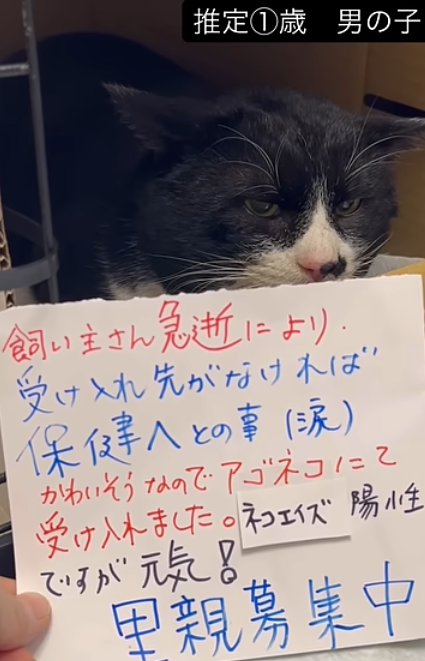 推定①歳　男の子
飼い主さん急逝により.
受け入れ先がなければ
保健へとの事(涙)
かわいそうなのでアゴネコにて
受け入れました。ネコエイズ 陽性
ですが元気!
里親募集中